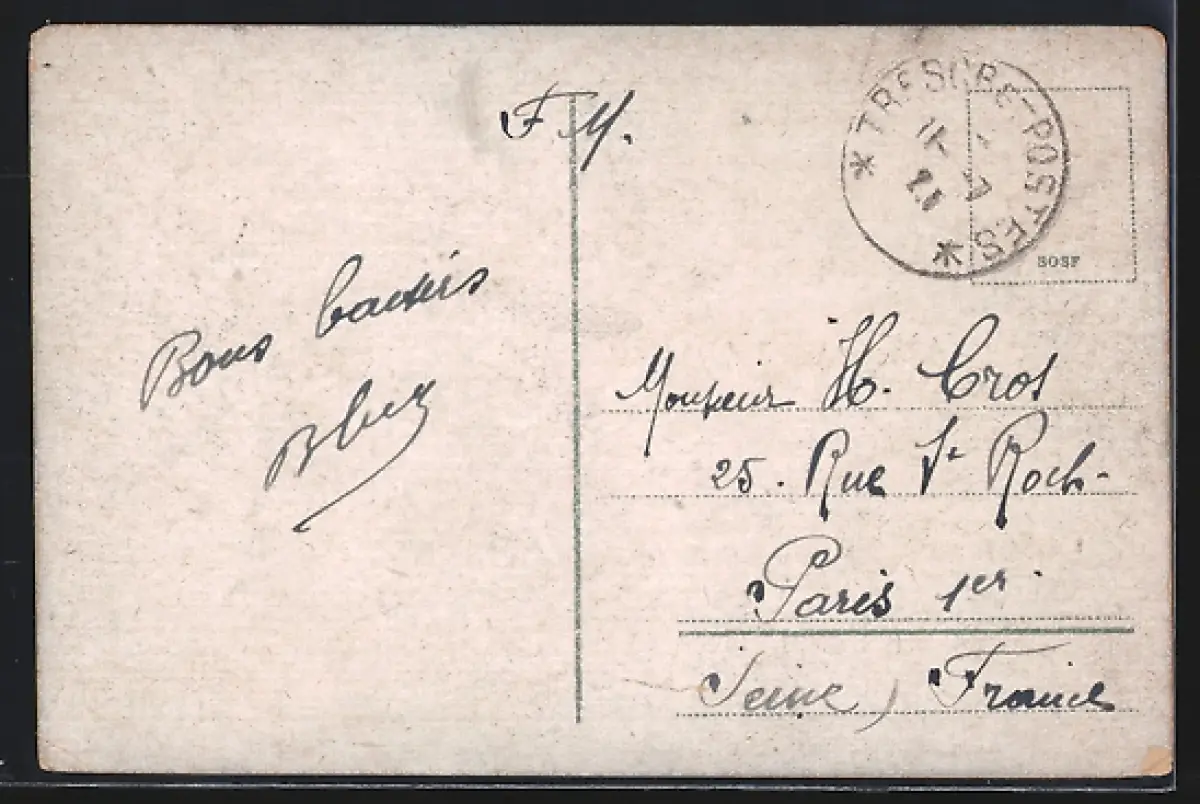 F. M.
TRESOR ET POSTES
SOSF
Bons baisers
Monsieur H. Cros
25. Rue St Roch-
Paris 1er.
Seine) France